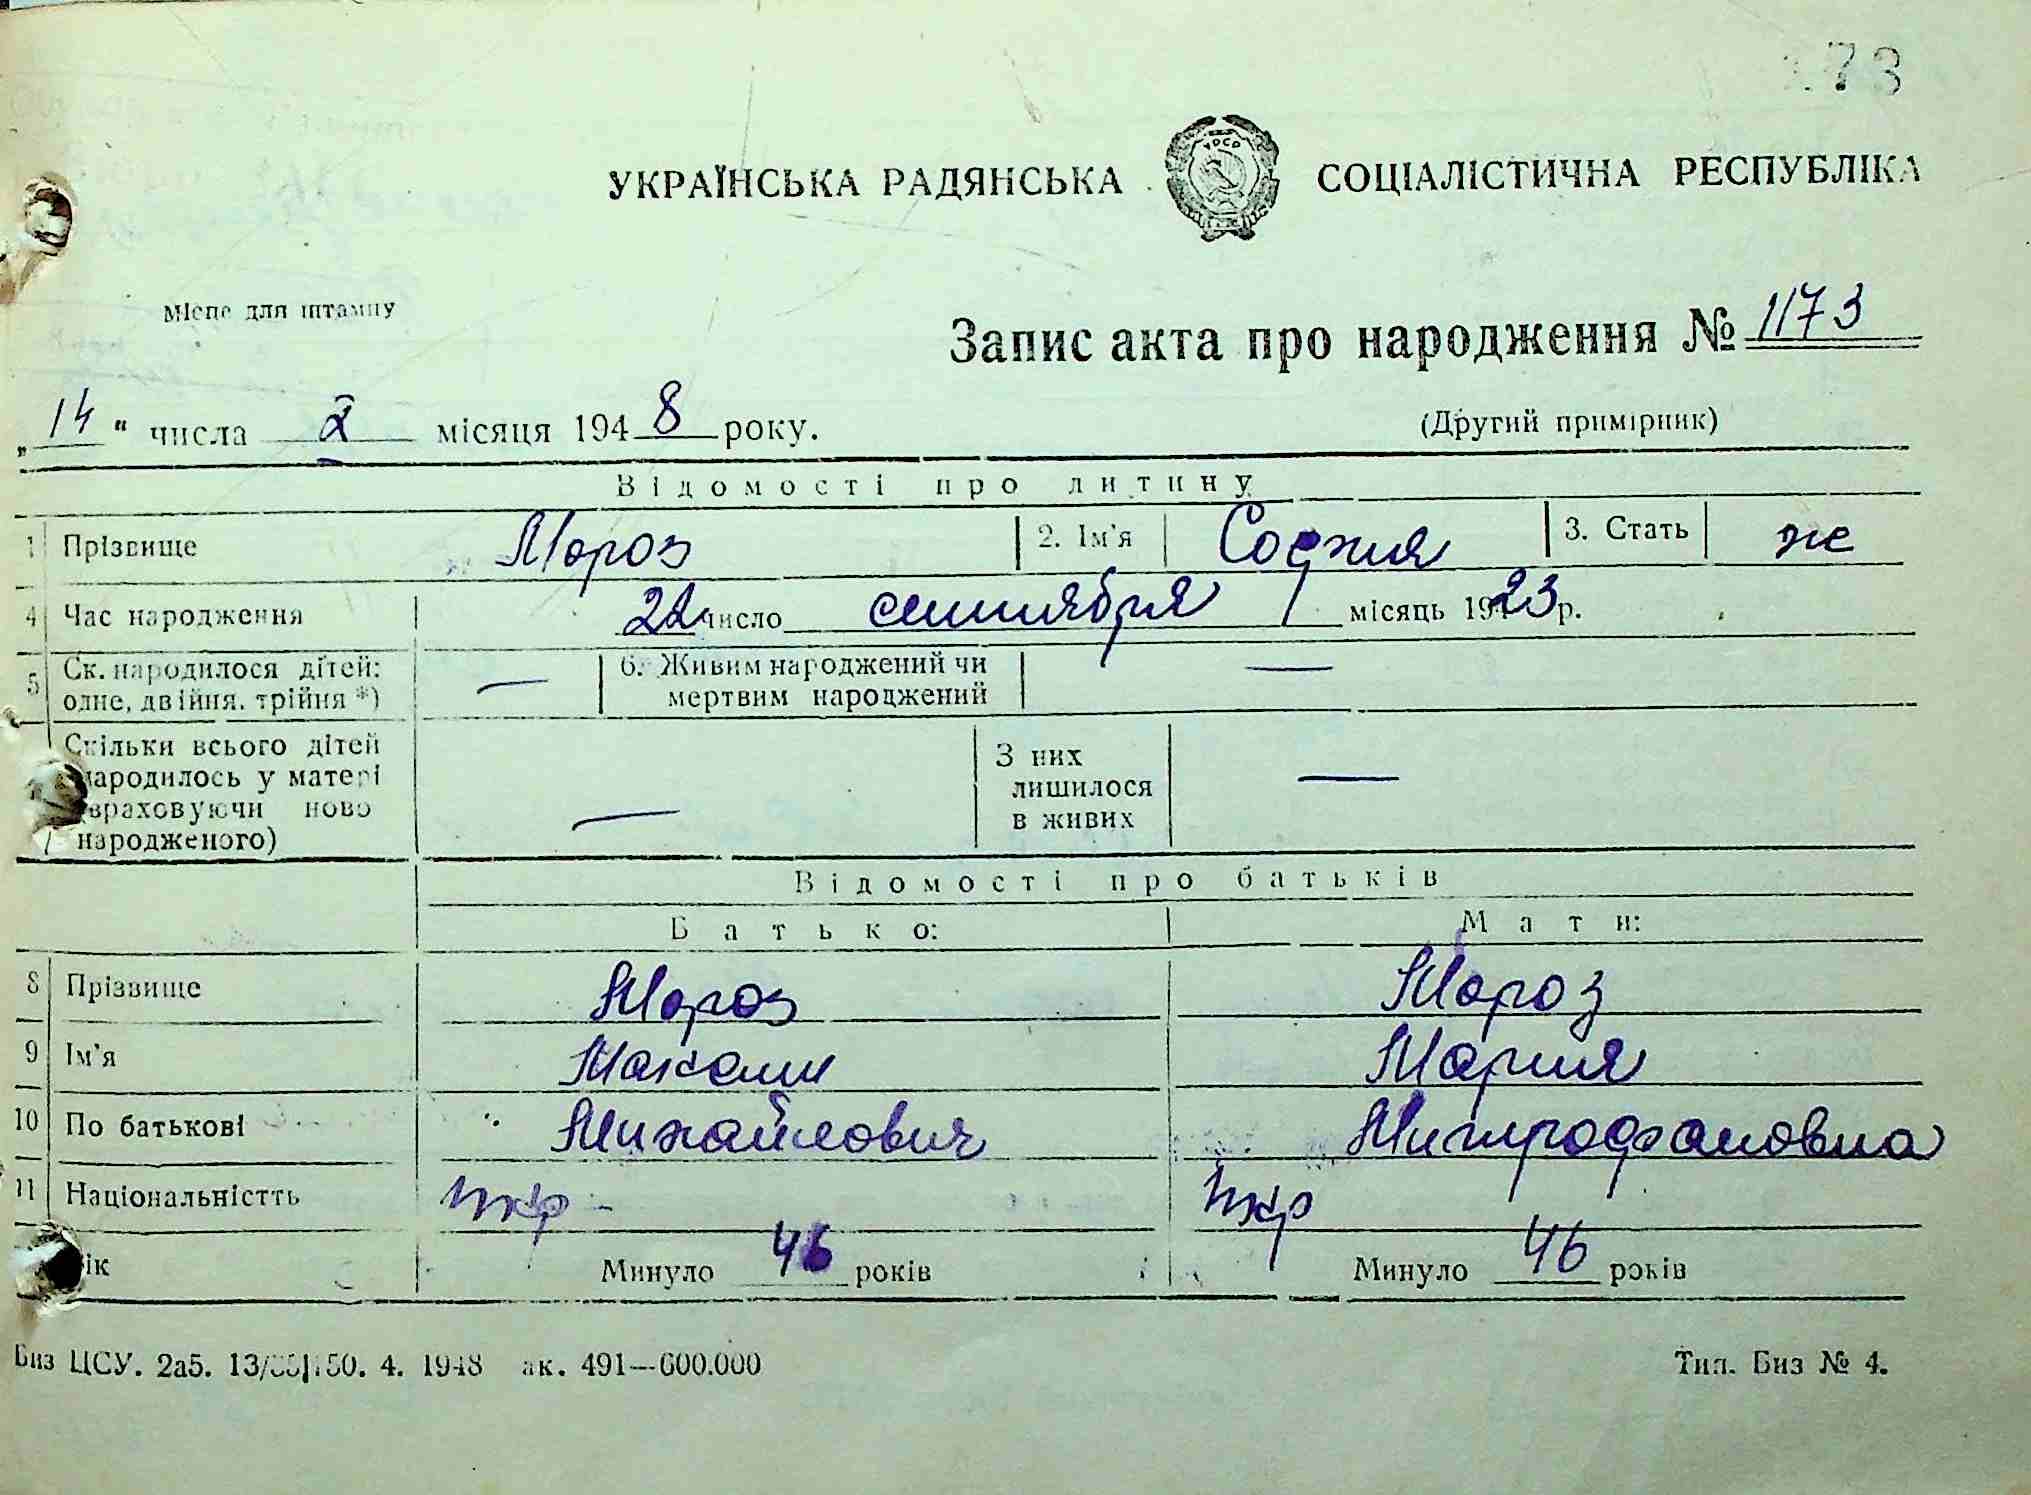 73
УКРАЇНСЬКА РАДЯНСЬКА СОЦІАЛІСТИЧНА РЕСПУБЛІКА
УРСР
Місце для штампу
Запис акта про народження № 1173
„14" числа 2 місяця 1948 року.
(Другий примірник)
Відомості про дитину
1 Прізвище Мороз 2. Ім'я София 3. Стать же
4 Час народження 22 число сентября місяць 1923 р.
5 Ск. народилося дітей: одне, двійня, трійня *) — 6. Живим народжений чи мертвим народжений —
Скільки всього дітей народилось у матері (враховуючи ново народженого) — З них лишилося в живих —
Відомості про батьків
Батько: Мати:
8 Прізвище Мороз Мороз
9 Ім'я Мария
10 По батькові Михайлович Митрофановна
11 Національністть укр укр
Вік Минуло 46 років Минуло 46 років
Биз ЦСУ. 2а5. 50. 4. 1948 ак. 491—600.000 Тип. Биз № 4.